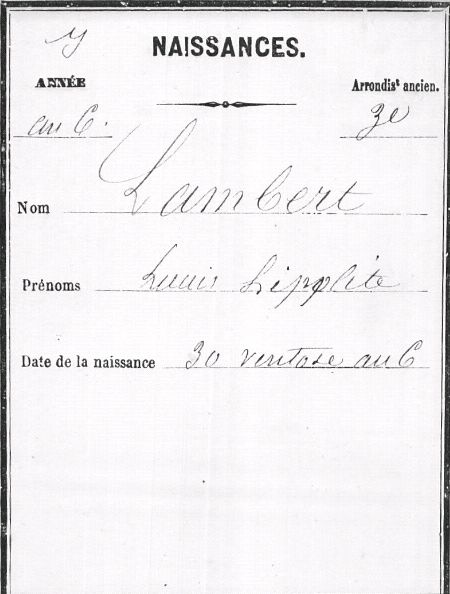 y
NAISSANCES.
ANNÉE
Arrondist ancien.
au 6.
3e
Nom Lambert
Prénoms Louis Hippolite
Date de la naissance 30 ventose au 6